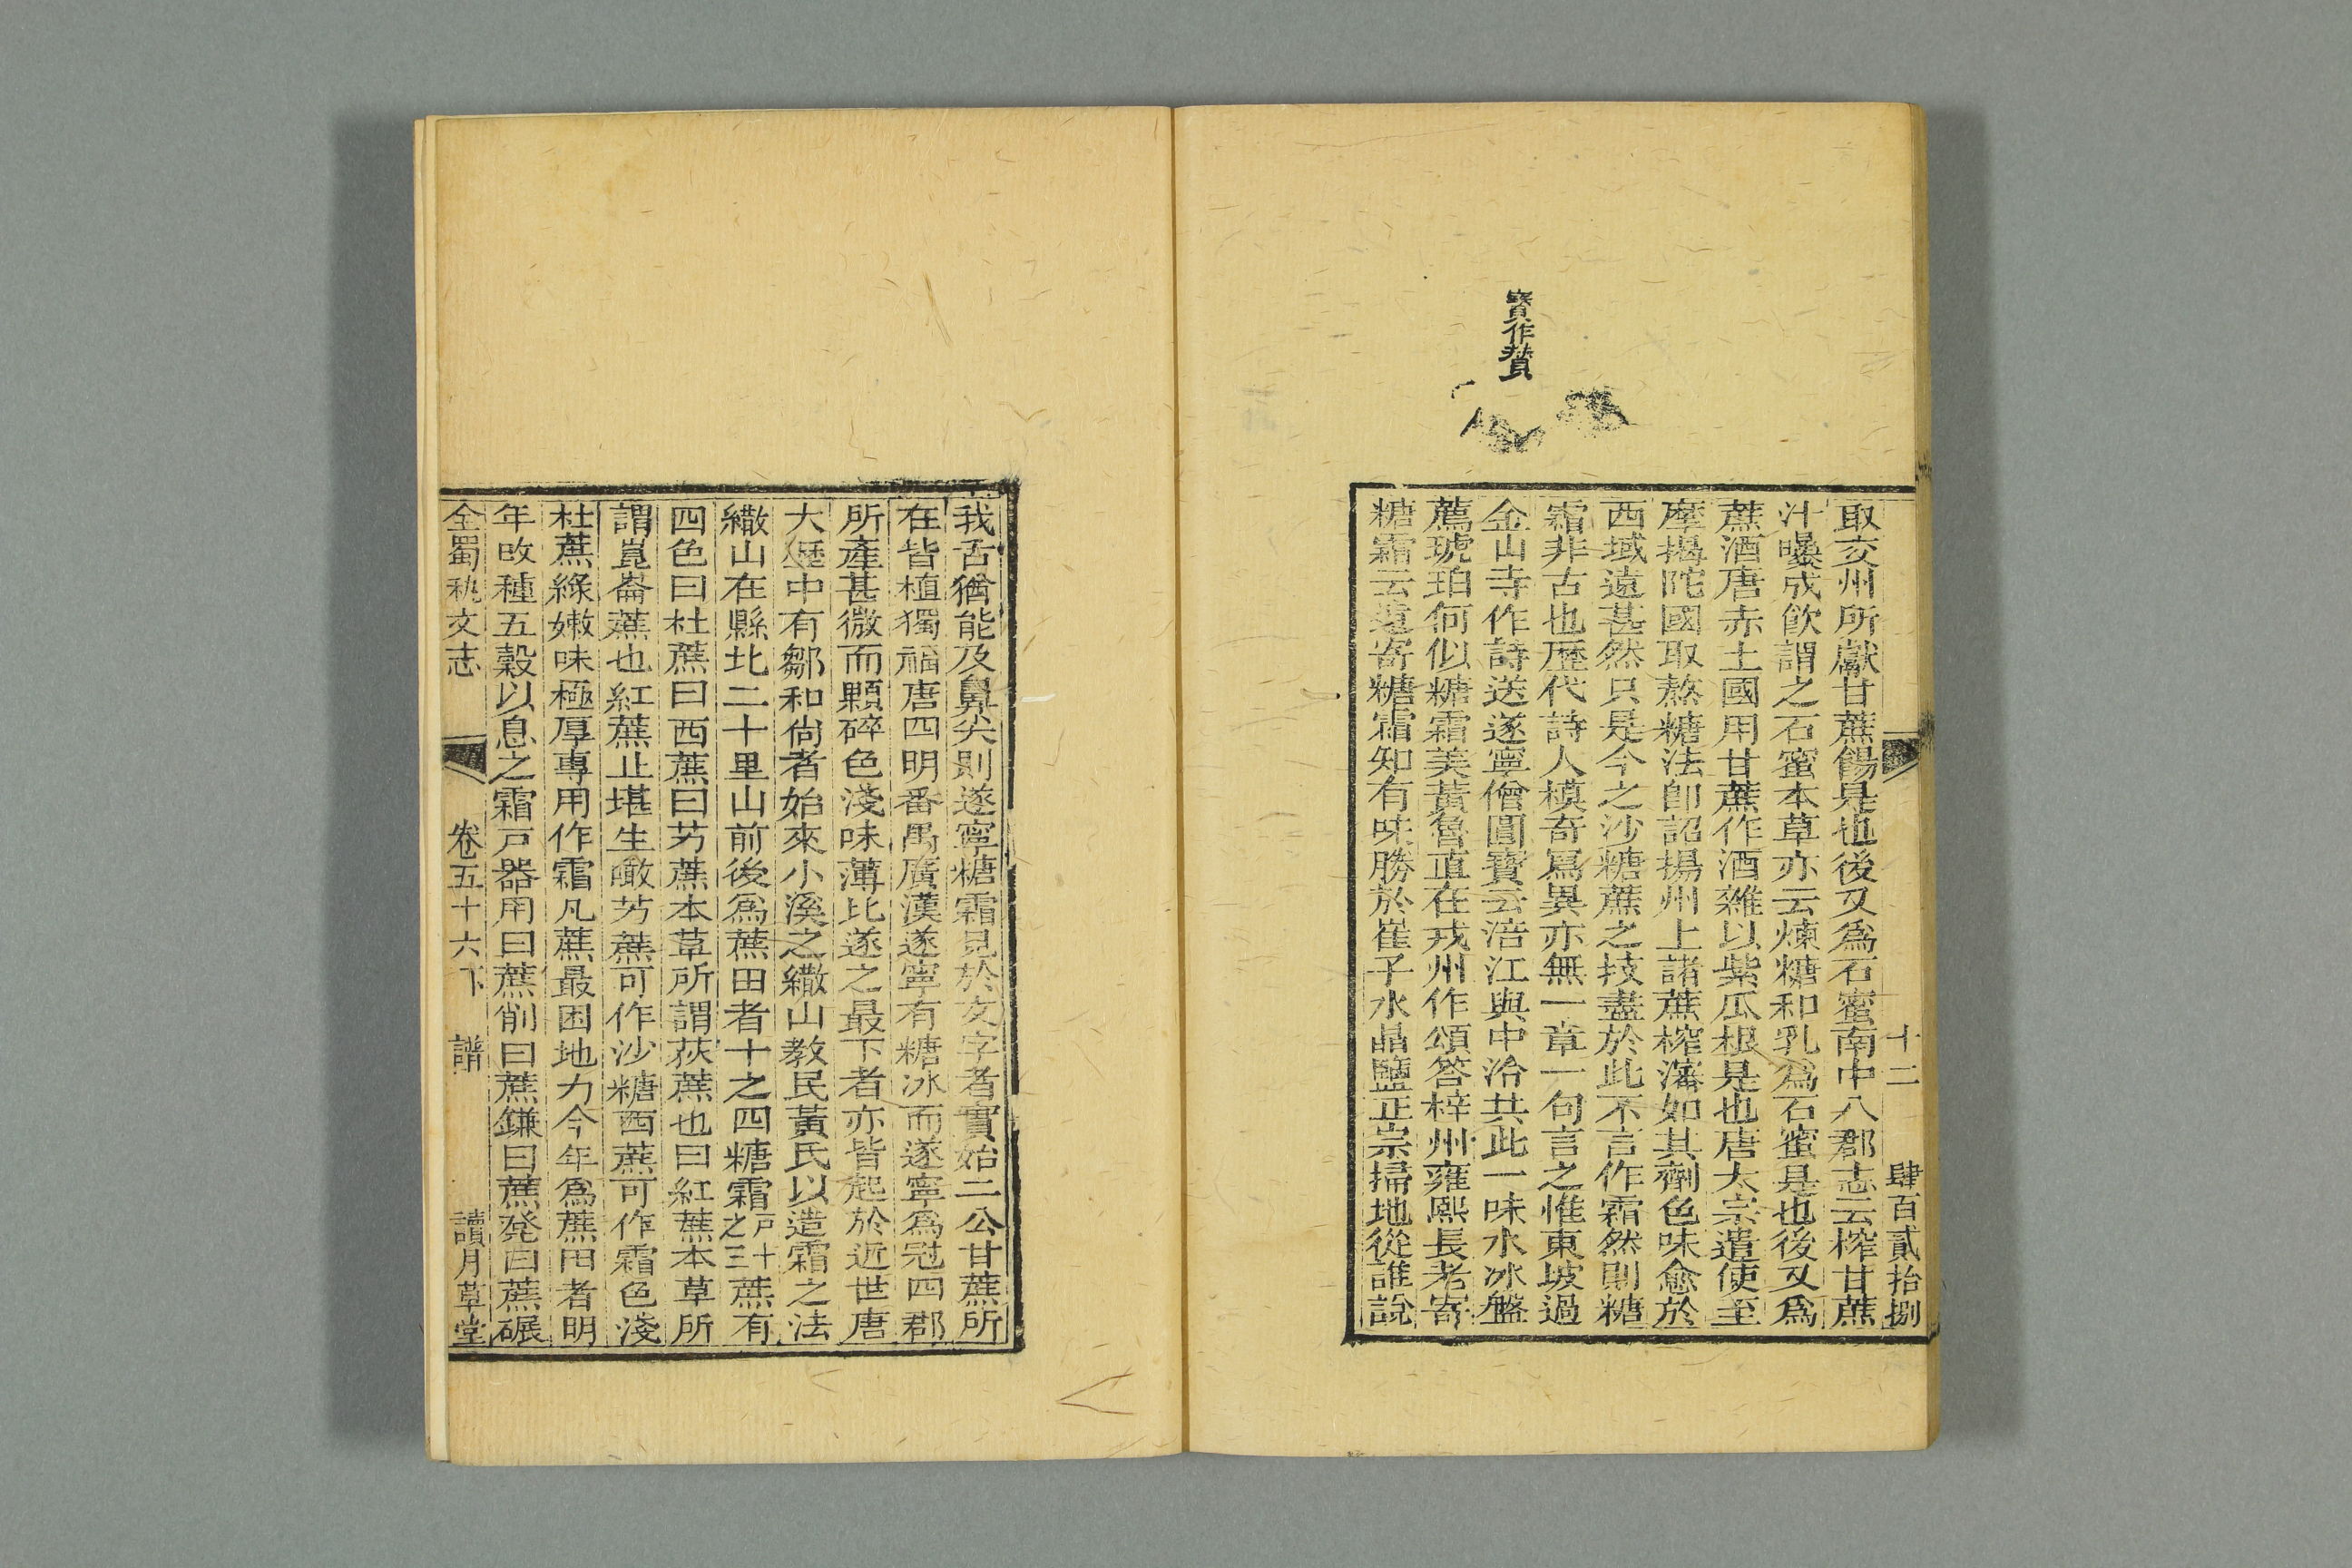 寳作賛
十二
肆百貳拾捌
取交州所獻甘蔗餳是也後又爲石蜜南中八郡志云榨甘蔗
汁曝成飮謂之石蜜本草亦云煉糖和乳爲石蜜是也後又爲
蔗酒唐赤土國用甘蔗作酒雜以紫瓜根是也唐太宗遣使至
摩揭陀國取熬糖法卽詔揚州上諸蔗榨瀋如其劑色味愈於
西域遠甚然只是今之沙糖蔗之技盡於此不言作霜然則糖
霜非古也歷代詩人模奇寫異亦無一章一句言之惟東坡過
金山寺作詩送遂寧僧圓寳云涪江與中泠共此一味水冰盤
薦琥珀何似糖霜美黃魯直在戎州作頌答梓州雍熙長老寄
糖霜云遠寄糖霜知有味勝於崔子水晶鹽正宗掃地從誰說
我舌猶能及鼻尖則遂寧糖霜見於文字者實始二公甘蔗所
在皆植獨福唐四明番禺廣漢遂寧有糖冰而遂寧爲冠四郡
所產甚微而顆碎色淺味薄比遂之最下者亦皆起於近世唐
大歷中有鄒和尙者始來小溪之繖山教民黃氏以造霜之法
繖山在縣北二十里山前後爲蔗田者十之四糖霜戸十之三蔗有
四色曰杜蔗曰西蔗曰艻蔗本草所謂荻蔗也曰紅蔗本草所
謂崑崙蔗也紅蔗止堪生噉艻蔗可作沙糖西蔗可作霜色淺
杜蔗綠嫩味極厚專用作霜凡蔗最困地力今年爲蔗田者明
年改種五穀以息之霜戸器用曰蔗削曰蔗鎌曰蔗凳曰蔗碾
全蜀秇文志
卷五十六下
譜
讀月草堂